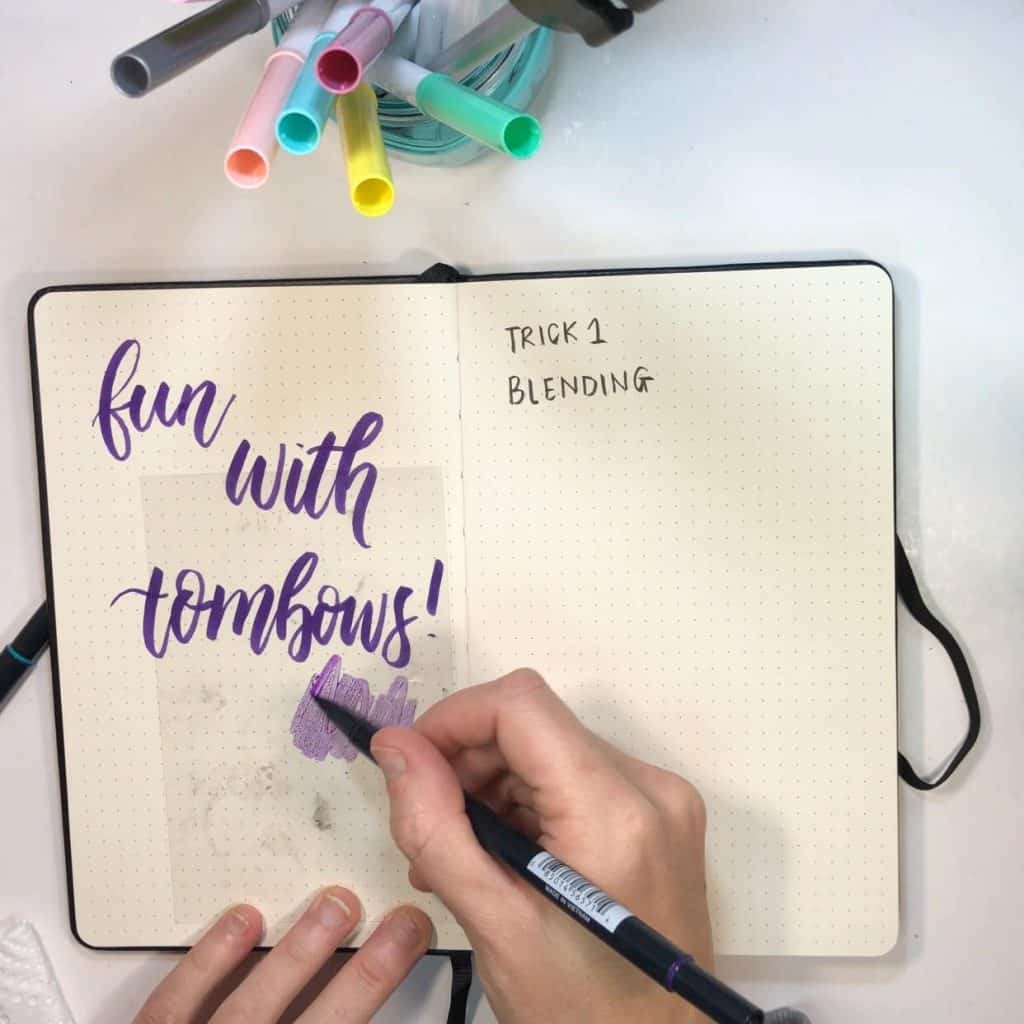 fun
with
tombows!
TRICK 1
BLENDING
MADE IN VIETNAM